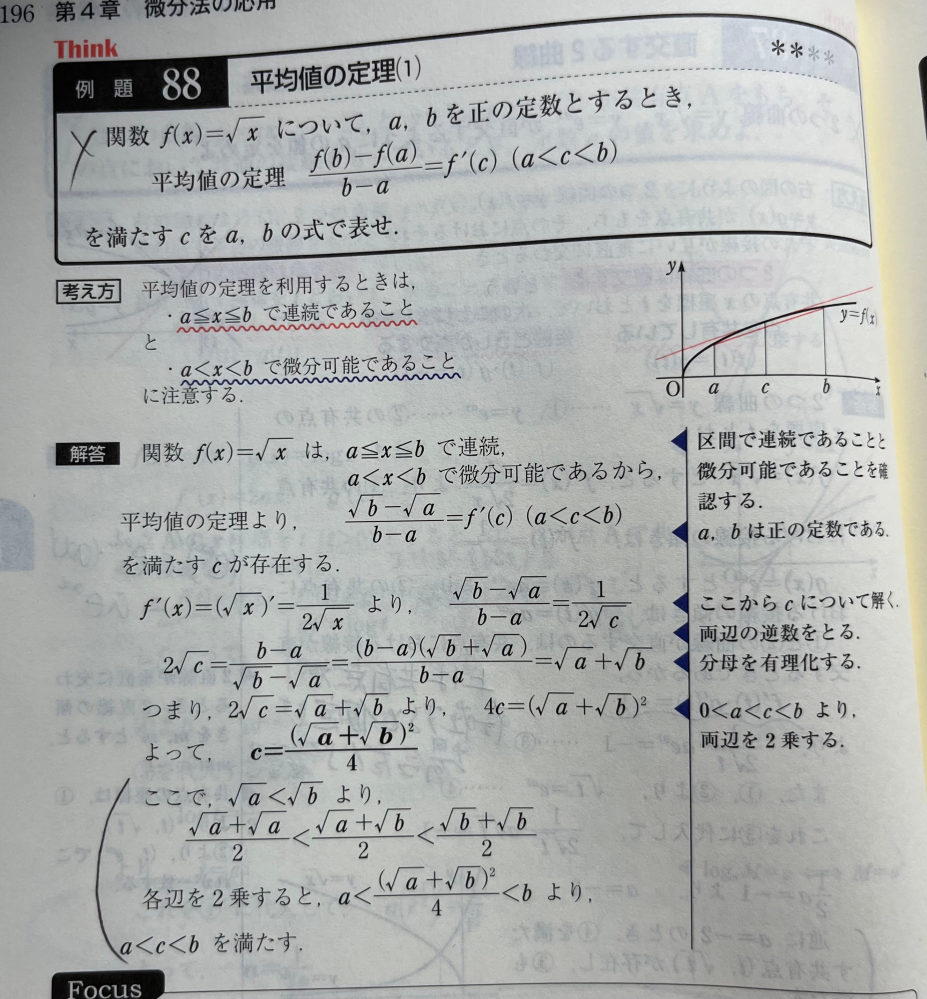 196 第4章 微分法の応用
Think
例題 88 平均値の定理(1) ****
関数 f(x)=√x について，a，b を正の定数とするとき，
平均値の定理 (f(b)−f(a))/(b−a)=f′(c) (a<c<b)
を満たす c を a，b の式で表せ．
考え方 平均値の定理を利用するときは，
・a≦x≦b で連続であること
と
・a<x<b で微分可能であること
に注意する．
y
y=f(x)
O a c b x
解答 関数 f(x)=√x は，a≦x≦b で連続，
a<x<b で微分可能であるから，
平均値の定理より，(√b−√a)/(b−a)=f′(c) (a<c<b)
を満たす c が存在する．
f′(x)=(√x)′=1/(2√x) より，(√b−√a)/(b−a)=1/(2√c)
2√c=(b−a)/(√b−√a)=((b−a)(√b+√a))/(b−a)=√a+√b
つまり，2√c=√a+√b より，4c=(√a+√b)²
よって，c=(√a+√b)²/4
ここで，√a<√b より，
(√a+√a)/2<(√a+√b)/2<(√b+√b)/2
各辺を2乗すると，a<(√a+√b)²/4<b より，
a<c<b を満たす．
区間で連続であることと
微分可能であることを確
認する．
a，b は正の定数である．
ここから c について解く．
両辺の逆数をとる．
分母を有理化する．
0<a<c<b より，
両辺を2乗する．
Focus